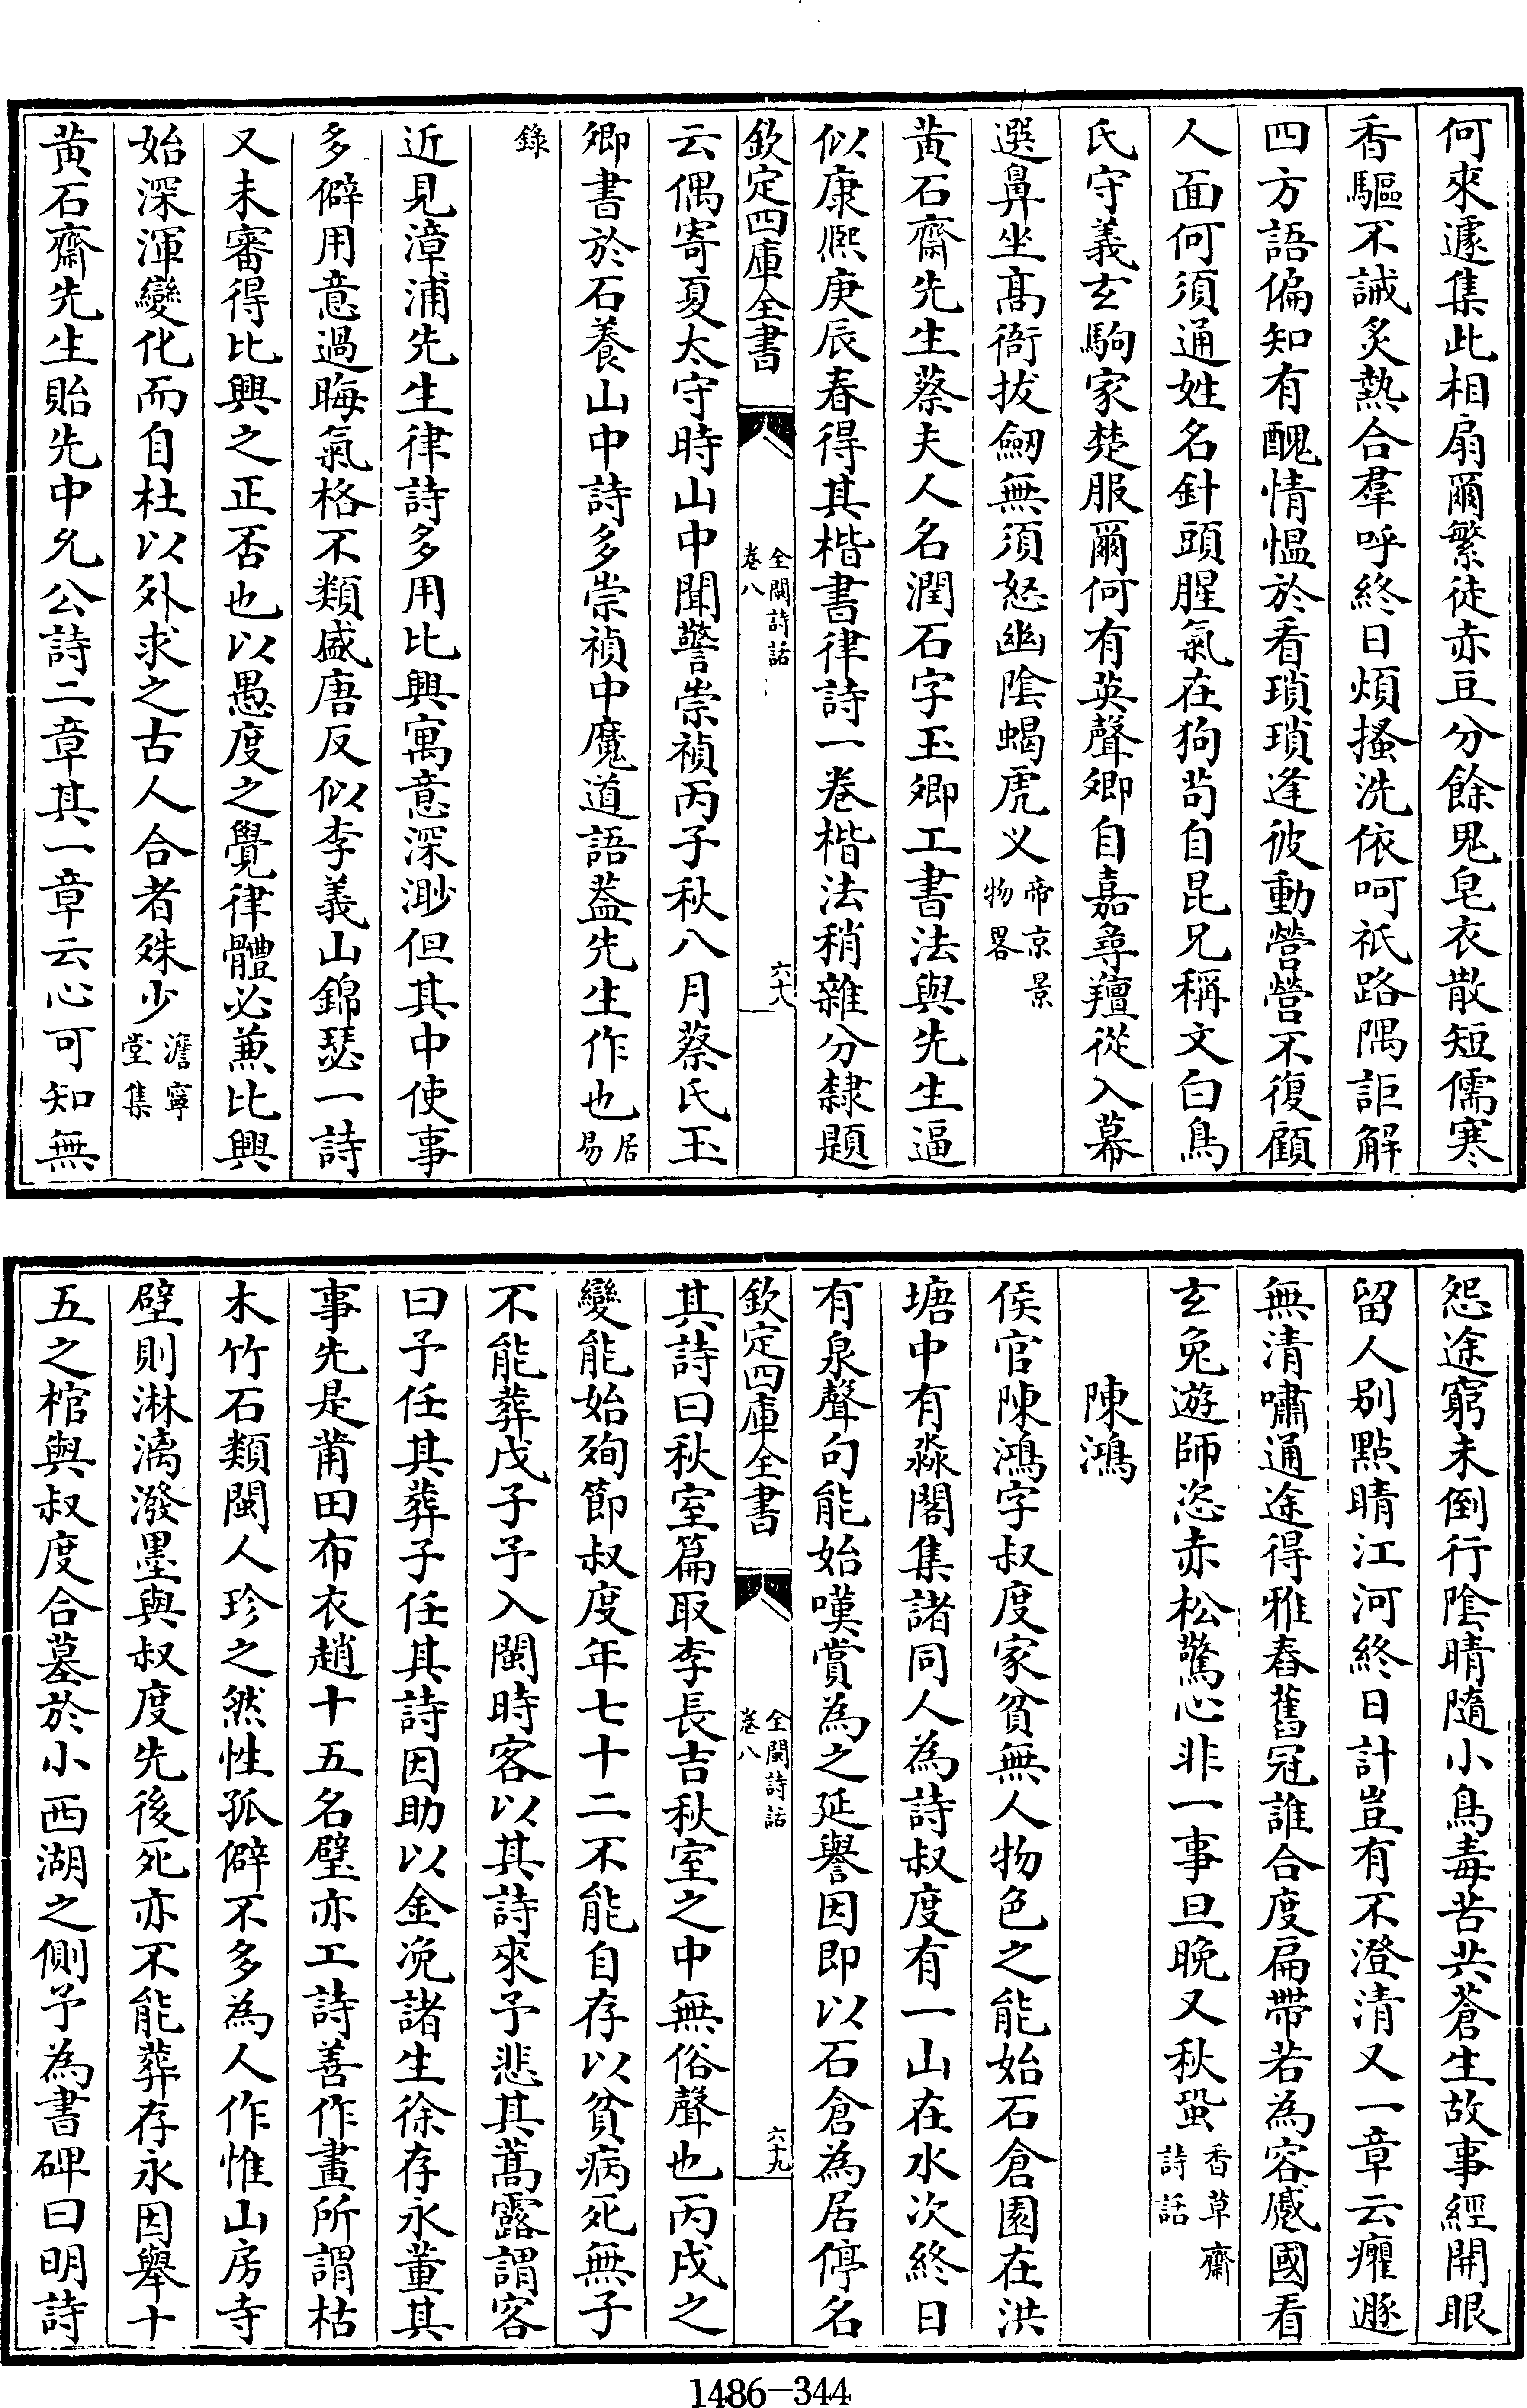 何來遽集此相扇爾繁徒赤豆分餘鬼皂衣散短儒寒
香驅不誡炙熱合羣呼終日煩搔洗依呵祇路隅詎解
四方語偏知有醜情慍於看瑣瑣逢彼動營營不復顧
人面何須通姓名針頭腥氣在狗茍自昆兄稱文白鳥
氏守義玄駒家楚服爾何有英聲卿自嘉尋羶從入幕
選鼻坐高衙拔劒無須怒幽陰蝎虎义帝京景物畧
黃石齋先生蔡夫人名潤石字玉卿工書法與先生逼
似康熈庚辰春得其楷書律詩一卷楷法稍雜分隸題
欽定四庫全書 全閩詩話 卷八 六十八
云偶寄夏太守時山中聞警崇禎丙子秋八月蔡氏玉
卿書於石養山中詩多崇禎中魔道語葢先生作也居易
錄
近見漳浦先生律詩多用比興寓意深渺但其中使事
多僻用意過晦氣格不類盛唐反似李義山錦瑟一詩
又未審得比興之正否也以愚度之覺律體必兼比興
始深渾變化而自杜以外求之古人合者殊少澹寧堂集
黃石齋先生貽先中允公詩二章其一章云心可知無
怨途窮未倒行陰晴隨小鳥毒苦共蒼生故事經開眼
留人別點睛江河終日計豈有不澄清又一章云癯遯
無清嘯通途得雅舂舊冠誰合度扁帶若為容慼國看
玄兔遊師恣赤松驚心非一事旦晚又秋蛩香草齋詩話
陳鴻
侯官陳鴻字叔度家貧無人物色之能始石倉園在洪
塘中有淼閣集諸同人為詩叔度有一山在水次終日
有泉聲句能始嘆賞為之延譽因即以石倉為居停名
欽定四庫全書 全閩詩話 卷八 六十九
其詩曰秋室篇取李長吉秋室之中無俗聲也丙戌之
變能始殉節叔度年七十二不能自存以貧病死無子
不能葬戊子予入閩時客以其詩來予悲其蒿露謂客
曰予任其葬子任其詩因助以金凂諸生徐存永董其
事先是莆田布衣趙十五名璧亦工詩善作畫所謂枯
木竹石類閩人珍之然性孤僻不多為人作惟山房寺
壁則淋漓潑墨與叔度先後死亦不能葬存永因舉十
五之棺與叔度合墓於小西湖之側予為書碑曰明詩
1486-344